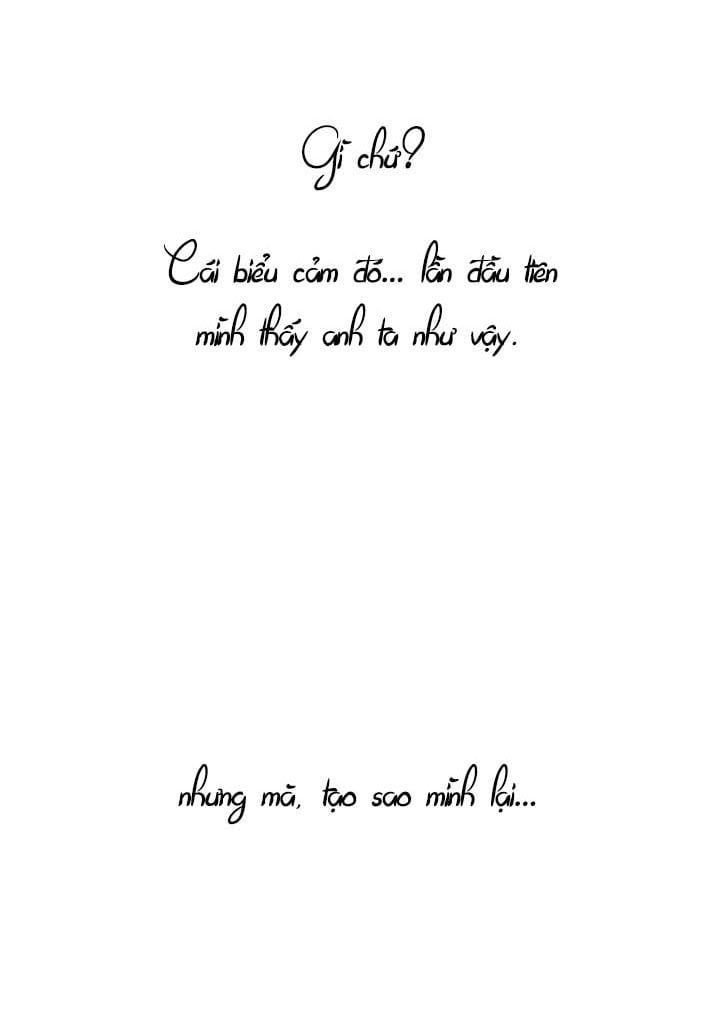 Gì chứ?
Cái biểu cảm đó... lần đầu tiên
mình thấy anh ta như vậy.
nhưng mà, tạo sao mình lại...